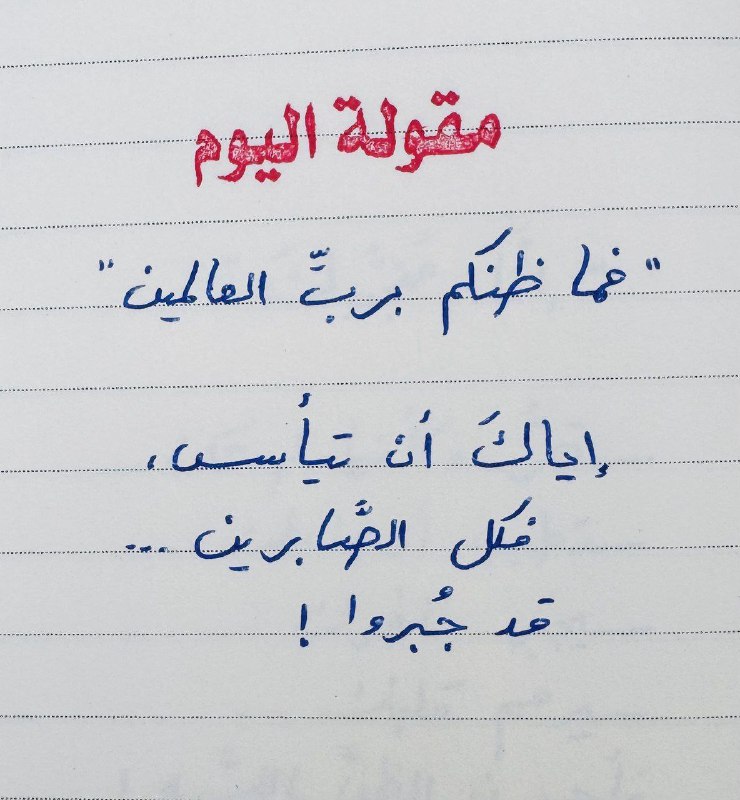 مقولة اليوم
"فما ظنكم بربِّ العالمين"
إياكَ أن تيأس،
فكل الصَّابرين ...
قد جُبروا !